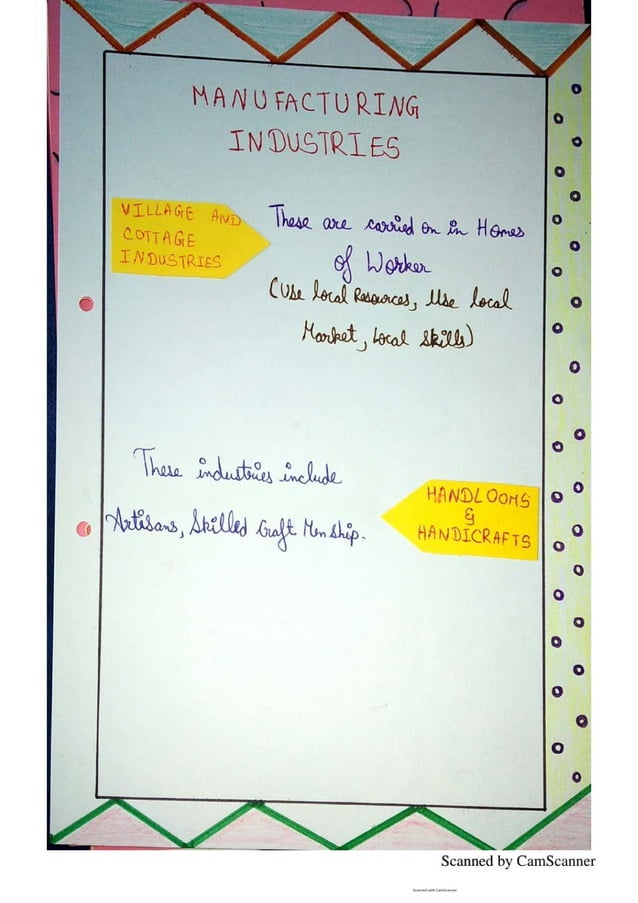 MANUFACTURING
INDUSTRIES
VILLAGE AND
COTTAGE
INDUSTRIES
These are carried on in Homes
of Worker
(Use local Resources, Use local
Market, Local Skills)
These industries include
Artisans, Skilled Craft Men ship.
HANDLOOMS
&
HANDICRAFTS
Scanned by CamScanner
Scanned with CamScanner